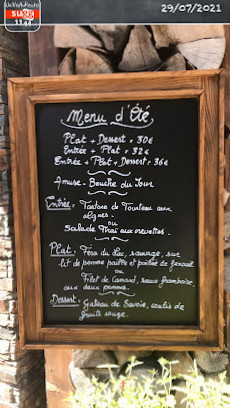 29/07/2021
Menu d'Été
Plat + Dessert = 30€
Entrée + Plat = 32€
Entrée + Plat + Dessert = 36€
Amuse-Bouche du Jour
Entrée: Tartare de Tourteau aux
algues -
ou
Salade Thaï aux crevettes -
Plat: Féra du Lac, sauvage, sur
lit de pomme paille et poêlée de fenouil
ou
Filet de Canard, sauce framboise,
aux deux pommes -
Dessert: Gateau de Savoie, coulis de
fruits rouge.